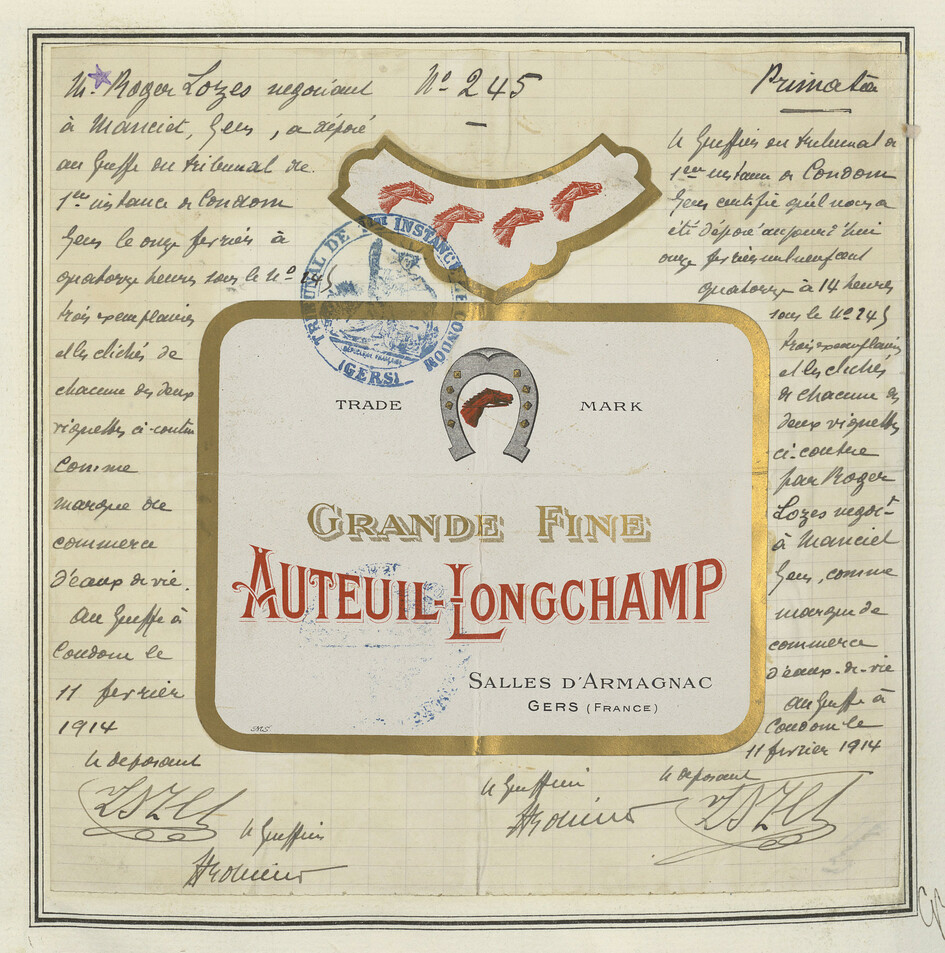 Mr. Roger Lozes negociant
à Manciet, Gers, a déposé
au Greffe du tribunal de
1ère instance de Condom
Gers le onze février à
quatorze heures sous le No 245
trois exemplaires
et les clichés de
chacune des deux
vignettes ci-contre
comme
marque de
commerce
d'eaux de vie.
Au Greffe à
Condom le
11 fevrier
1914
Le deposant
Le Greffier
No 245
TRIBUNAL DE 1ERE INSTANCE DE CONDOM
(GERS)
TRADE MARK
GRANDE FINE
AUTEUIL-LONGCHAMP
SALLES D'ARMAGNAC
GERS (FRANCE)
Le Greffier
Primata
Le Greffier du tribunal de
1ère instance de Condom
Gers certifie qu'il nous a
été déposé aujourd'hui
onze février mil neuf cent
quatorze à 14 heures
sous le No 245
trois exemplaires
et les clichés
de chacune des
deux vignettes
ci-contre
par Roger
Lozes negot
à Manciet
Gers, comme
marque de
commerce
d'eaux-de-vie
Au Greffe à
Condom le
11 février 1914
Le deposant